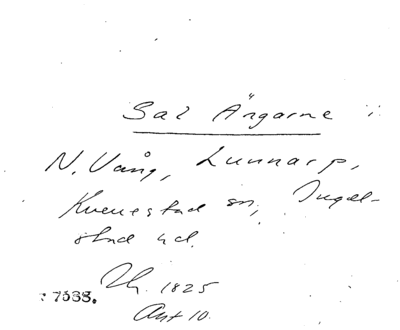 Sal Ängarne i
N. Vång, Lunnarp,
Kverrestad sn, Ingel-
stad hd.
1825
Akt 10.
7538.